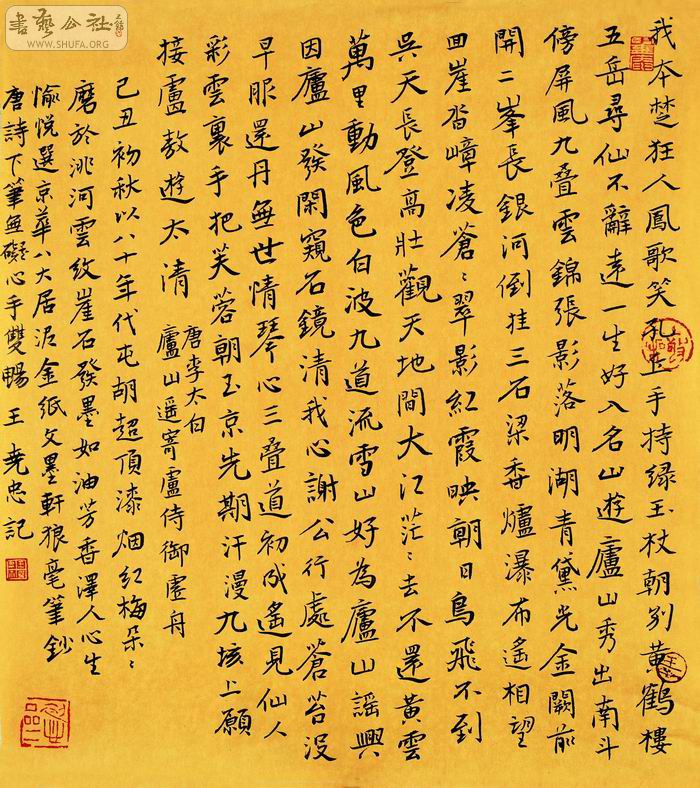 書藝公社
WWW.SHUFA.ORG
我本楚狂人鳳歌笑孔丘手持緑玉杖朝别黄鶴樓
五岳尋仙不辭遠一生好入名山遊廬山秀出南斗
傍屏風九叠雲錦張影落明湖青黛光金闕前
開二峯長銀河倒挂三石梁香爐瀑布遙相望
回崖沓嶂凌蒼〻翠影紅霞映朝日鳥飛不到
吳天長登高壯觀天地間大江茫〻去不還黃雲
萬里動風色白波九道流雪山好為廬山謠興
因廬山發閑窺石鏡清我心謝公行處蒼苔没
早服還丹無世情琴心三叠道初成遙見仙人
彩雲裏手把芙蓉朝玉京先期汗漫九垓上願
接盧敖遊太清
唐李太白
廬山遥寄盧侍御虛舟
己丑初秋以八十年代屯胡超頂漆烟红梅朵〻
磨於洮河雲紋崖石發墨如油芳香澤人心生
愉悦選京華八大居泥金紙文墨軒狼毫筆鈔
唐詩下筆無礙心手雙暢 王堯忠記